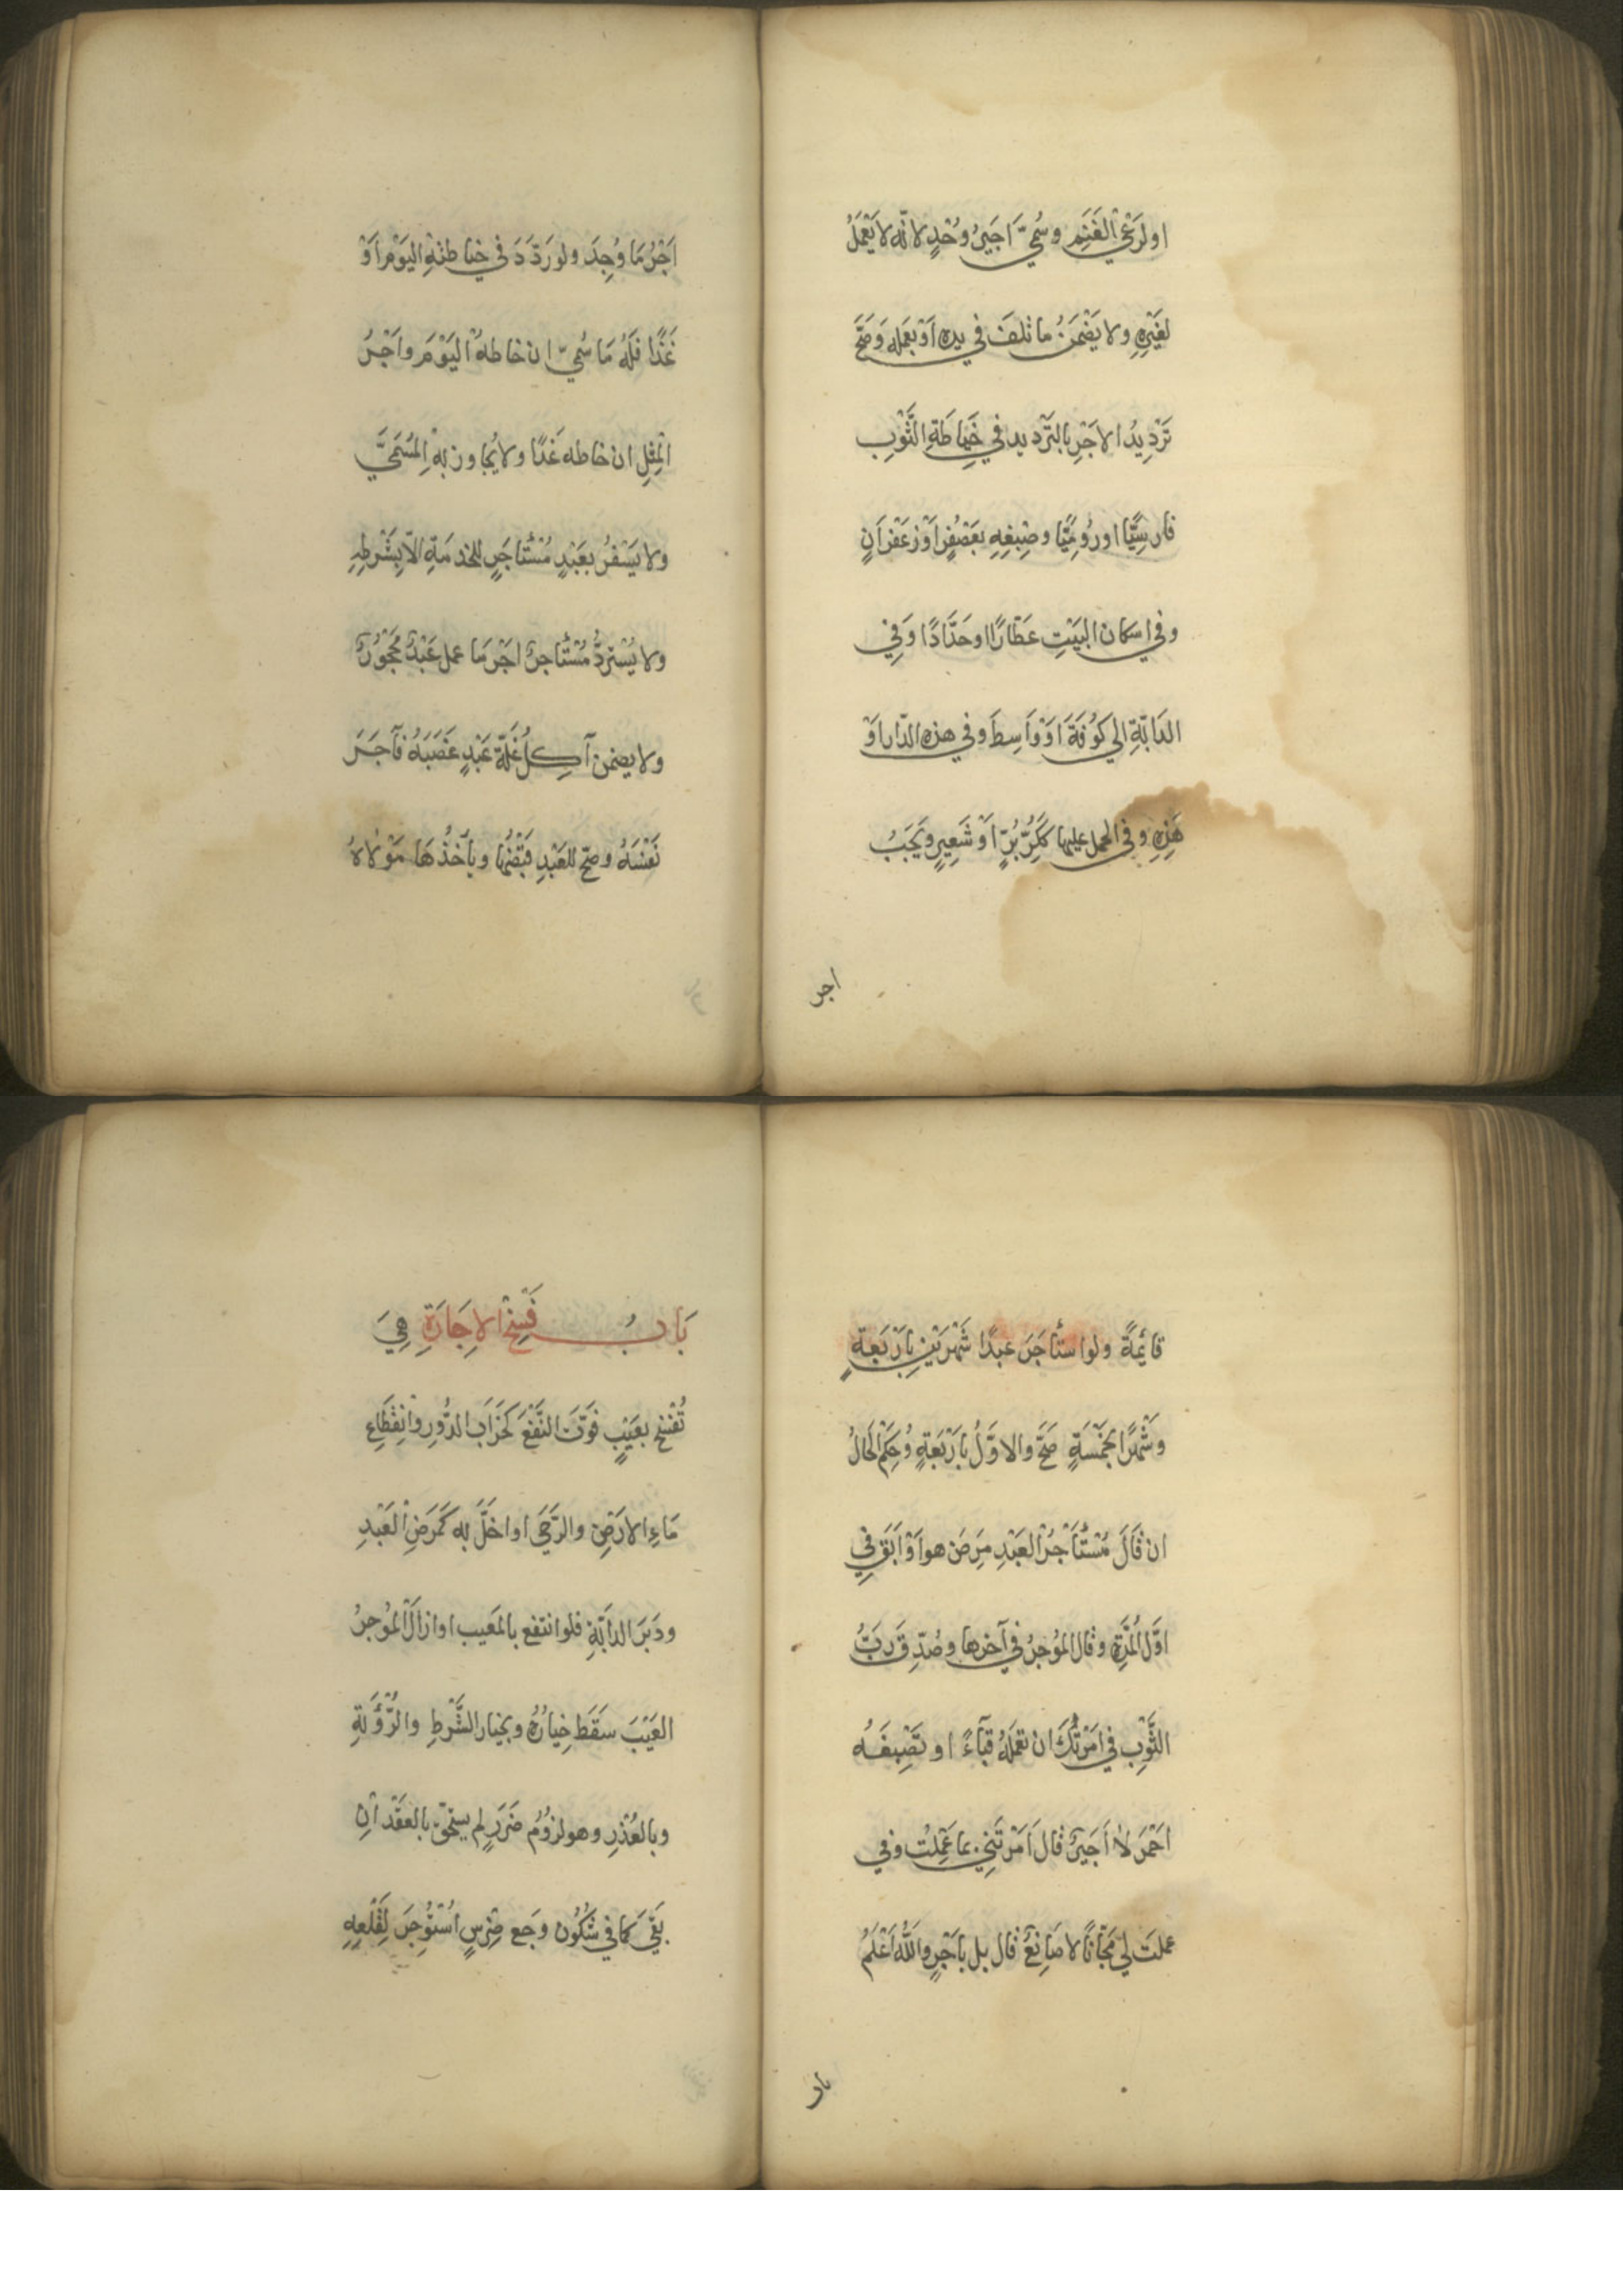 اولرَعْيِ الغَنَمِ وسُمِّيَ اَجيرُ وَحْدٍ لانّه لا يَعْمَلُ
لغَيْرِهِ ولا يَضْمَنُ ما تلفَ في يده اَوْ بعَمَله وَصَحَّ
تَرْدِيدُ الاَجْرِ بالتَرْديد في خِيَاطَةِ الثَّوْبِ
فارسِيًّا اورُومِيًّا وصِبْغِهِ بعُصْفُرٍ اَوْ زعْفَرَانٍ
وفي اسكان البَيْتِ عَطَّارًا اوحَدَّادًا وَفِي
الدَابَّةِ الي كُوْفَةَ اَوْ وَاسِطَ وفي هذه الدّار اَوْ
هَذِهِ وفي الحمل عليها كُرَّ بُرٍّ اَوْ شَعِيرٍ ويَجِبُ
اجر
اَجْرُ مَا وُجِدَ ولو رَدَّدَ في خياطتهِ اليَوْمَ اَوْ
غَدًا فَلَهُ مَا سُمِّيَ ان خاطهُ اليَوْمَ واَجْرُ
المِثْلِ ان خاطه غَدًا ولا يُجاوز بِهِ المُسَمَّي
ولا يُسَفرُ بعَبْدٍ مُسْتَأجَرٍ للخدمَةِ الّا بِشَرْطِهِ
ولا يُسْتردُّ مُسْتَأجرٌ اَجْرَ مَا عمل عَبْدٌ مَحْجُوْرٌ
ولا يضمن آكِلُ غَلّةَ عَبْدٍ غَصَبَهُ فآجَرَ
نَفْسَهُ وصحّ للعَبْدِ قبْضُها ويأخذُهَا مَوْلاهُ
قائِمَةً ولو استَأجَرَ عبدًا شَهْرَيْنِ بِاَرْبَعةٍ
وشَهْرًا بخَمْسَةٍ صَحَّ والاوّلُ بِارْبَعَةٍ وحُكِّمَ الحَالُ
ان قَالَ مُسْتَأجِرُ العَبْدِ مَرِضَ هو اَوْ اَبَقَ في
اوّل المُدَّةِ وقال المؤجرُ في آخرها وصُدِّقَ رَبُّ
الثَّوْبِ في اَمَرْتُكَ ان تعْمَلَهُ قبَآءً او تَصْبِغَهُ
اَحْمَرَ لَا اَجيرٌ قال اَمَرْتَنِي بما عَمِلْتُ وفي
عملتَ لي مَجّانًا لا صَانِعٌ قال بل بأَجْرٍ واللهُ اَعْلَمُ
باب
بَابُ فَسْخِ الاِجَارَةِ هِيَ
تُفْسَخ بعَيْبٍ فَوَّتَ النَّفْعَ كَخَرَابِ الدُّورِ وانقطَاعِ
مَاءِ الارْضِ والرَّحَي اواخلَّ به كَمَرَضِ العَبْدِ
ودَبَرَ الدَابّةِ فلو انتفع بالمَعيب او ازال المُوْجرُ
العَيْبَ سَقَطَ خِيَارُهُ وبخيار الشَّرْطِ والرُّؤيةِ
وبالعُذْرِ وهو لزوُمُ ضَرَرٍ لم يستحقّ بالعَقْدِ اِنْ
بَقِيَ كمافي سُكُونِ وَجعِ ضِرْسٍ اُسْتُؤْجِرَ لِقَلْعِهِ